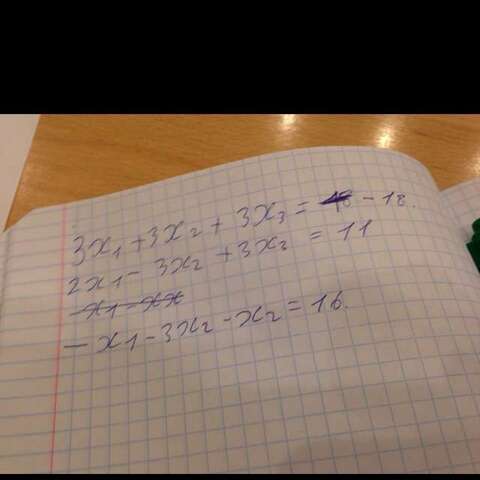 3x₁ + 3x₂ + 3x₃ = -18.
2x1 - 3x2 + 3x3 = 11
-x1 - 3x2 - x2 = 16.